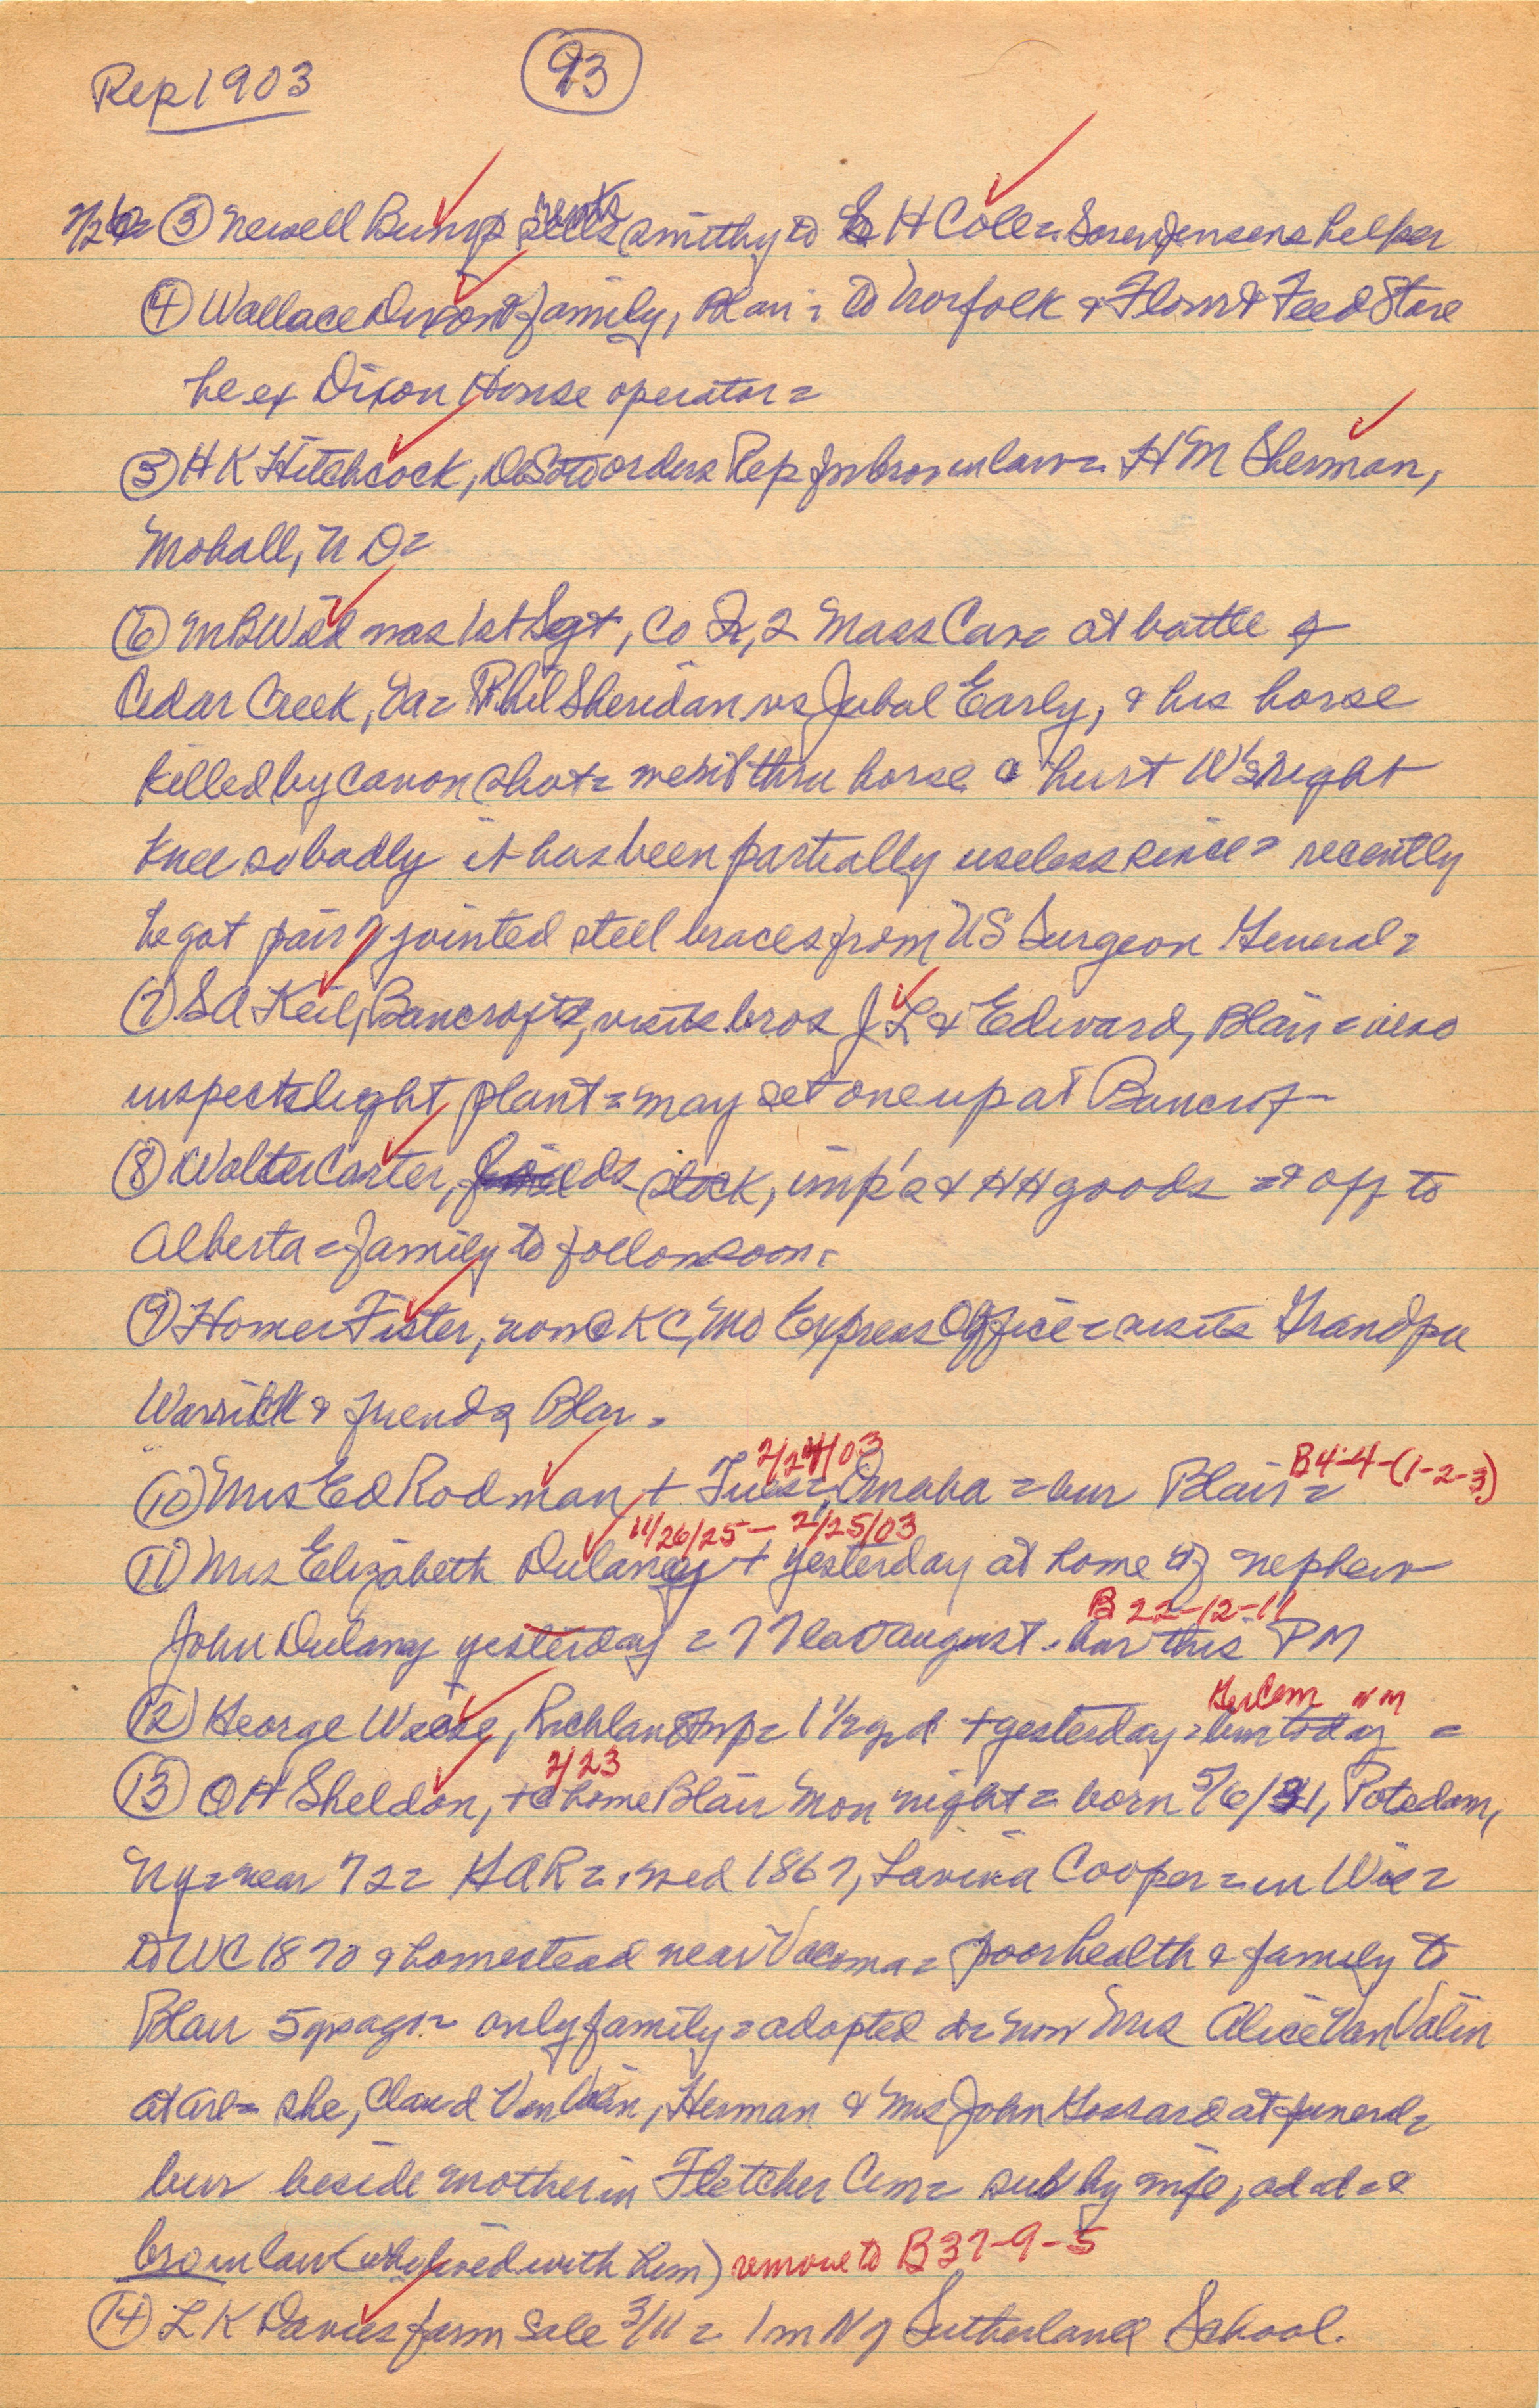 Rep 1903
93
2/26= ③ Newell Bump rents smithy to H Cole = Soren Jensens helper
④ Wallace Dixon & family, Blair = to Norfolk & Flour & Feed Store
he ex Dixon House operator =
⑤ H K Hitchcock, DeSoto orders Rep for bro in law = H M Sherman,
Mohall, N D =
⑥ M B Wild was 1st Sgt, Co 2 Mass Cav = at battle of
Cedar Creek, Va = Phil Sheridan vs Jubal Early, & his horse
killed by canon shot = went thru horse & hurt W's right
knee so badly it has been partially useless since = recently
he got pair of jointed steel braces from US Surgeon General =
⑦ S A Keil, Bancroft, visits bros J L & Edward, Blair = also
inspects light plant = may set one up at Bancrof
⑧ Walter Carter, lds stock, imp's & HH goods = & off to
Alberta = family to follow soon =
⑨ Homer Fister, now @ KC, Mo Express Office = visits Grandpa
Warrick & friends, Blair =
2/24/03 B4-4-(1-2-3)
⑩ Mrs Ed Rodman + Tues = Omaha = bur Blair =
11/26/25 - 2/25/03
⑪ Mrs Elizabeth Dulaney + yesterday at home of nephew
B 22-12-11
John Dulaney yesterday = 77 last August = bur this PM
Ger Cem NM
⑫ George Weise, Richland twp = 1 1/2 yr d + yesterday = bur today =
2/23
⑬ O H Sheldon, + @ home Blair Mon night = born 5/6/31, Potsdam,
NY = near 72 = GAR = med 1867, Lavina Cooper = in Wis =
to WC 1870 & homestead near Vacoma = poor health & family to
Blair 5 yrs ago = only family = adopted d = now Mrs Alice Van Valin
at Arl = she, Claud Van Valin, Herman & Mrs John Gossard at funeral =
bur beside mother in Fletcher Cem = sub by wife, ad d = &
bro in law (who lived with him) remove to B37-9-5
⑭ L K Davies farm sale 3/11 = 1 m N of Sutherland School.